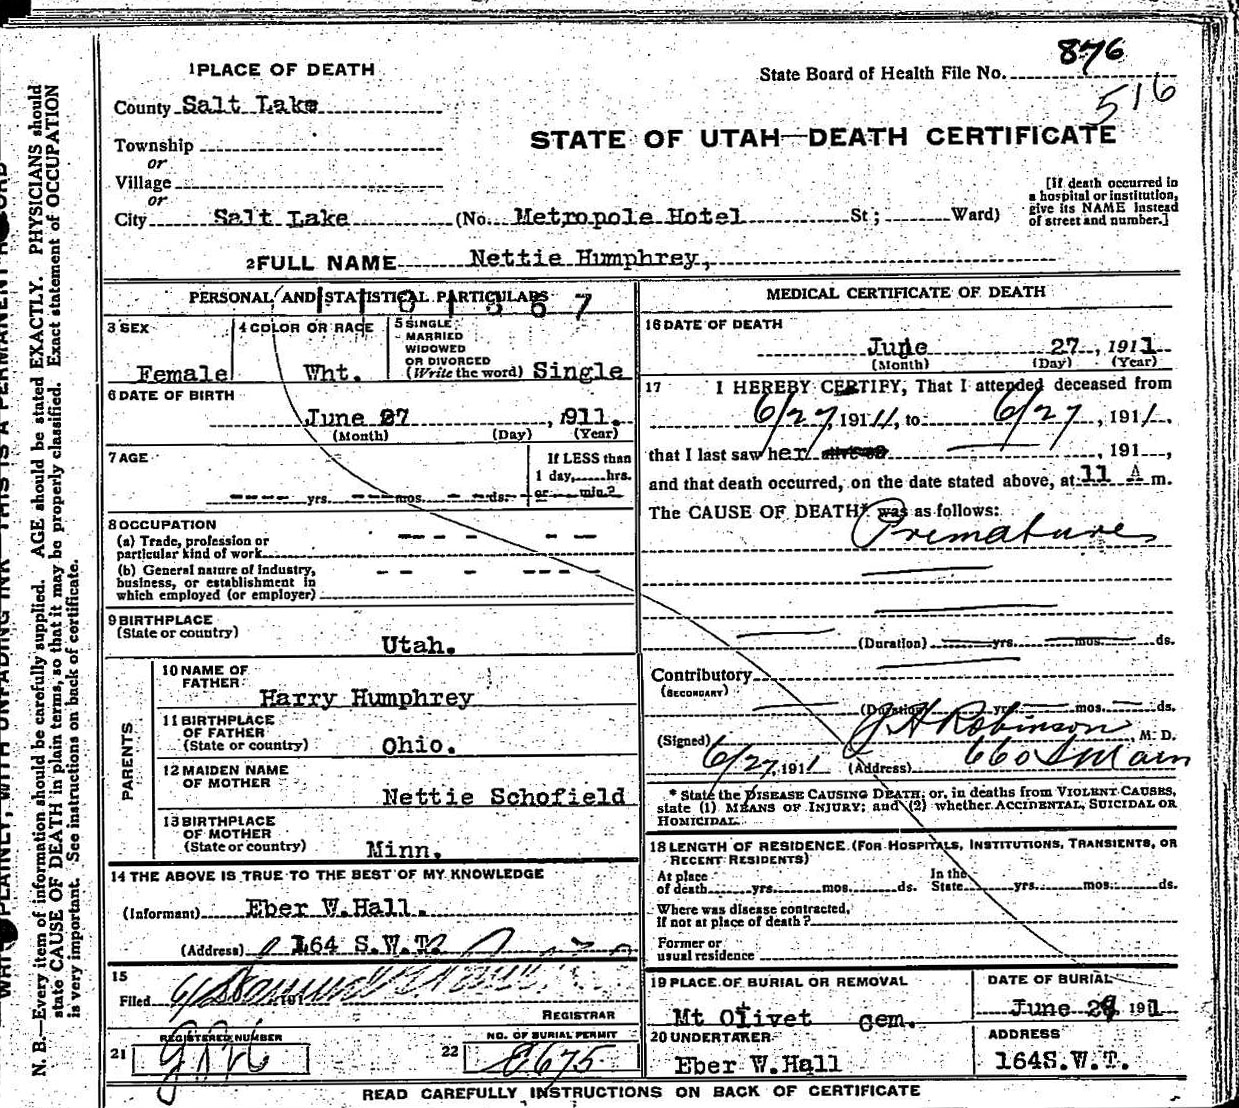 876
1 PLACE OF DEATH
State Board of Health File No.
516
County Salt Lake
STATE OF UTAH—DEATH CERTIFICATE
Township
or
Village
or
City Salt Lake (No. Metropole Hotel St; Ward)
[If death occurred in a hospital or institution, give its NAME instead of street and number.]
2 FULL NAME Nettie Humphrey,
PERSONAL AND STATISTICAL PARTICULARS
3 SEX
Female
4 COLOR OR RACE
Wht.
5 SINGLE
MARRIED
WIDOWED
OR DIVORCED
(Write the word) Single
6 DATE OF BIRTH
June 27, 1911.
(Month) (Day) (Year)
7 AGE
If LESS than
1 day, hrs.
yrs. mos. ds. or min.?
8 OCCUPATION
(a) Trade, profession or
particular kind of work
(b) General nature of industry,
business, or establishment in
which employed (or employer)
9 BIRTHPLACE
(State or country)
Utah.
PARENTS
10 NAME OF
FATHER
Harry Humphrey
11 BIRTHPLACE
OF FATHER
(State or country) Ohio.
12 MAIDEN NAME
OF MOTHER
Nettie Schofield
13 BIRTHPLACE
OF MOTHER
(State or country) Minn.
14 THE ABOVE IS TRUE TO THE BEST OF MY KNOWLEDGE
(Informant) Eber W.Hall.
(Address) 164 S.W.T.
15
Filed 191
REGISTRAR
REGISTERED NUMBER
21
NO. OF BURIAL PERMIT
22 E675
MEDICAL CERTIFICATE OF DEATH
16 DATE OF DEATH
June 27, 1911
(Month) (Day) (Year)
17 I HEREBY CERTIFY, That I attended deceased from
6/27, 1911, to 6/27, 1911.
that I last saw her , 191 ,
and that death occurred, on the date stated above, at 11 A m.
The CAUSE OF DEATH* was as follows:
Premature
(Duration) yrs. mos. ds.
Contributory
(SECONDARY)
(Duration) yrs. mos. ds.
(Signed) J H Robinson, M. D.
6/27, 1911 (Address) 660 S Main
* State the DISEASE CAUSING DEATH; or, in deaths from VIOLENT CAUSES,
state (1) MEANS OF INJURY; and (2) whether ACCIDENTAL, SUICIDAL OR
HOMICIDAL.
18 LENGTH OF RESIDENCE (FOR HOSPITALS, INSTITUTIONS, TRANSIENTS, OR
RECENT RESIDENTS)
At place In the
of death yrs. mos. ds. State yrs. mos. ds.
Where was disease contracted,
if not at place of death?
Former or
usual residence
19 PLACE OF BURIAL OR REMOVAL
Mt Olivet Cem.
DATE OF BURIAL
June 1911
20 UNDERTAKER
Eber W.Hall
ADDRESS
164S.W.T.
READ CAREFULLY INSTRUCTIONS ON BACK OF CERTIFICATE
N. B.—Every item of information should be carefully supplied. AGE should be stated EXACTLY. PHYSICIANS should
state CAUSE OF DEATH in plain terms, so that it may be properly classified. Exact statement of OCCUPATION
is very important. See instructions on back of certificate.
PLAINLY, WITH UNFADING INK THIS IS A PERMANENT